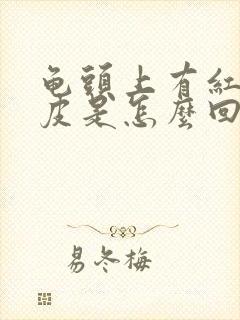 龟頭上有紅
皮是怎麼回
易冬梅